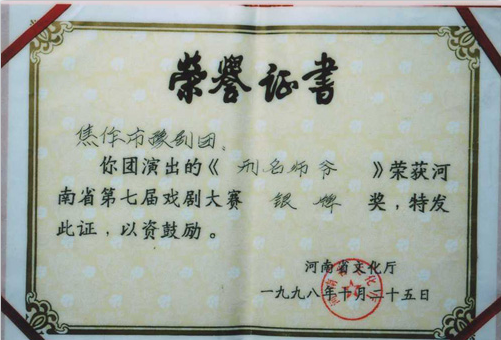 荣誉证书
焦作市豫剧团:
你团演出的《刑名师爷》荣获河
南省第七届戏剧大赛银牌奖,特发
此证,以资鼓励。
河南省文化厅
一九九八年十月二十五日